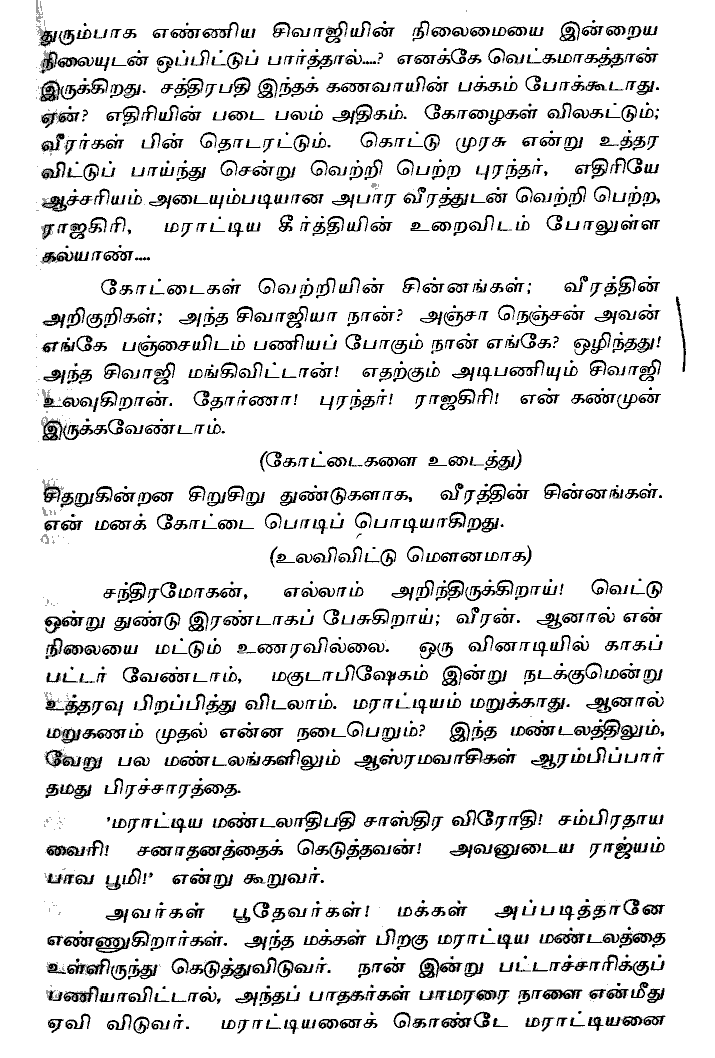 துரும்பாக எண்ணிய சிவாஜியின் நிலைமையை இன்றைய
நிலையுடன் ஒப்பிட்டுப் பார்த்தால்....? எனக்கே வெட்கமாகத்தான்
இருக்கிறது. சத்திரபதி இந்தக் கணவாயின் பக்கம் போகூடாது.
ஏன்? எதிரியின் படை பலம் அதிகம். கோழைகள் விலகட்டும்;
வீரர்கள் பின் தொடரட்டும். கொட்டு முரசு என்று உத்தர
விட்டுப் பாய்ந்து சென்று வெற்றி பெற்ற புரந்தர், எதிரியே
ஆச்சரியம் அடையும்படியான அபார வீரத்துடன் வெற்றி பெற்ற,
ராஜகிரி, மராட்டிய கீர்த்தியின் உறைவிடம் போலுள்ள
கல்யாண்....
கோட்டைகள் வெற்றியின் சின்னங்கள்; வீரத்தின்
அறிகுறிகள்; அந்த சிவாஜியா நான்? அஞ்சா நெஞ்சன் அவன்
எங்கே பஞ்சையிடம் பணியப் போகும் நான் எங்கே? ஒழிந்தது!
அந்த சிவாஜி மங்கிவிட்டான்! எதற்கும் அடிபணியும் சிவாஜி
உலவுகிறான். தோர்ணா! புரந்தர்! ராஜகிரி! என் கண்முன்
இருக்கவேண்டாம்.
(கோட்டைகளை உடைத்து)
சிதறுகின்றன சிறுசிறு துண்டுகளாக, வீரத்தின் சின்னங்கள்.
என் மனக் கோட்டை பொடிப் பொடியாகிறது.
(உலவிவிட்டு மௌனமாக)
சந்திரமோகன், எல்லாம் அறிந்திருக்கிறாய்! வெட்டு
ஒன்று துண்டு இரண்டாகப் பேசுகிறாய்; வீரன். ஆனால் என்
நிலையை மட்டும் உணரவில்லை. ஒரு வினாடியில் காகப்
பட்டர் வேண்டாம், மகுடாபிஷேகம் இன்று நடக்குமென்று
உத்தரவு பிறப்பித்து விடலாம். மராட்டியம் மறுக்காது. ஆனால்
மறுகணம் முதல் என்ன நடைபெறும்? இந்த மண்டலத்திலும்,
வேறு பல மண்டலங்களிலும் ஆஸ்ரமவாசிகள் ஆரம்பிப்பார்
தமது பிரச்சாரத்தை.
'மராட்டிய மண்டலாதிபதி சாஸ்திர விரோதி! சம்பிரதாய
வைரி! சனாதனத்தைக் கெடுத்தவன்! அவனுடைய ராஜ்யம்
பாவ பூமி!' என்று கூறுவர்.
அவர்கள் பூதேவர்கள்! மக்கள் அப்படித்தானே
எண்ணுகிறார்கள். அந்த மக்கள் பிறகு மராட்டிய மண்டலத்தை
உள்ளிருந்து கெடுத்துவிடுவர். நான் இன்று பட்டாச்சாரிக்குப்
பணியாவிட்டால், அந்தப் பாதகர்கள் பாமரரை நாளை என்மீது
ஏவி விடுவர். மராட்டியனைக் கொண்டே மராட்டியனை